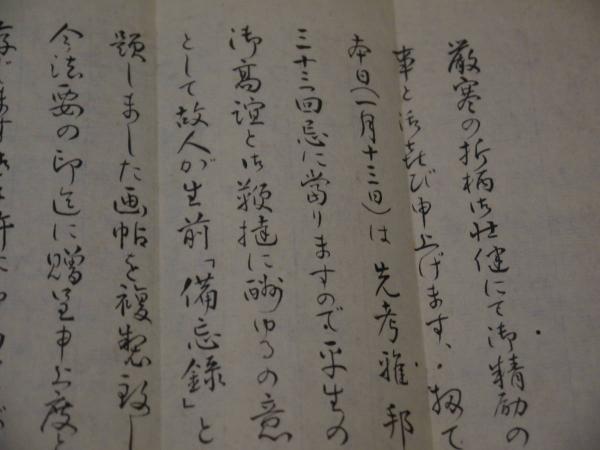 厳寒の折柄御壮健にて御精励の
事と御喜び申上げます、扨て
本日(一月十三日)は先考雅邦
三十三回忌に當りますので平生の
御高誼と御鞭撻に酬ゆるの意
として故人が生前「備忘録」と
題しました画帖を複製致し
今法要の印迄に贈呈申上度と
存じます